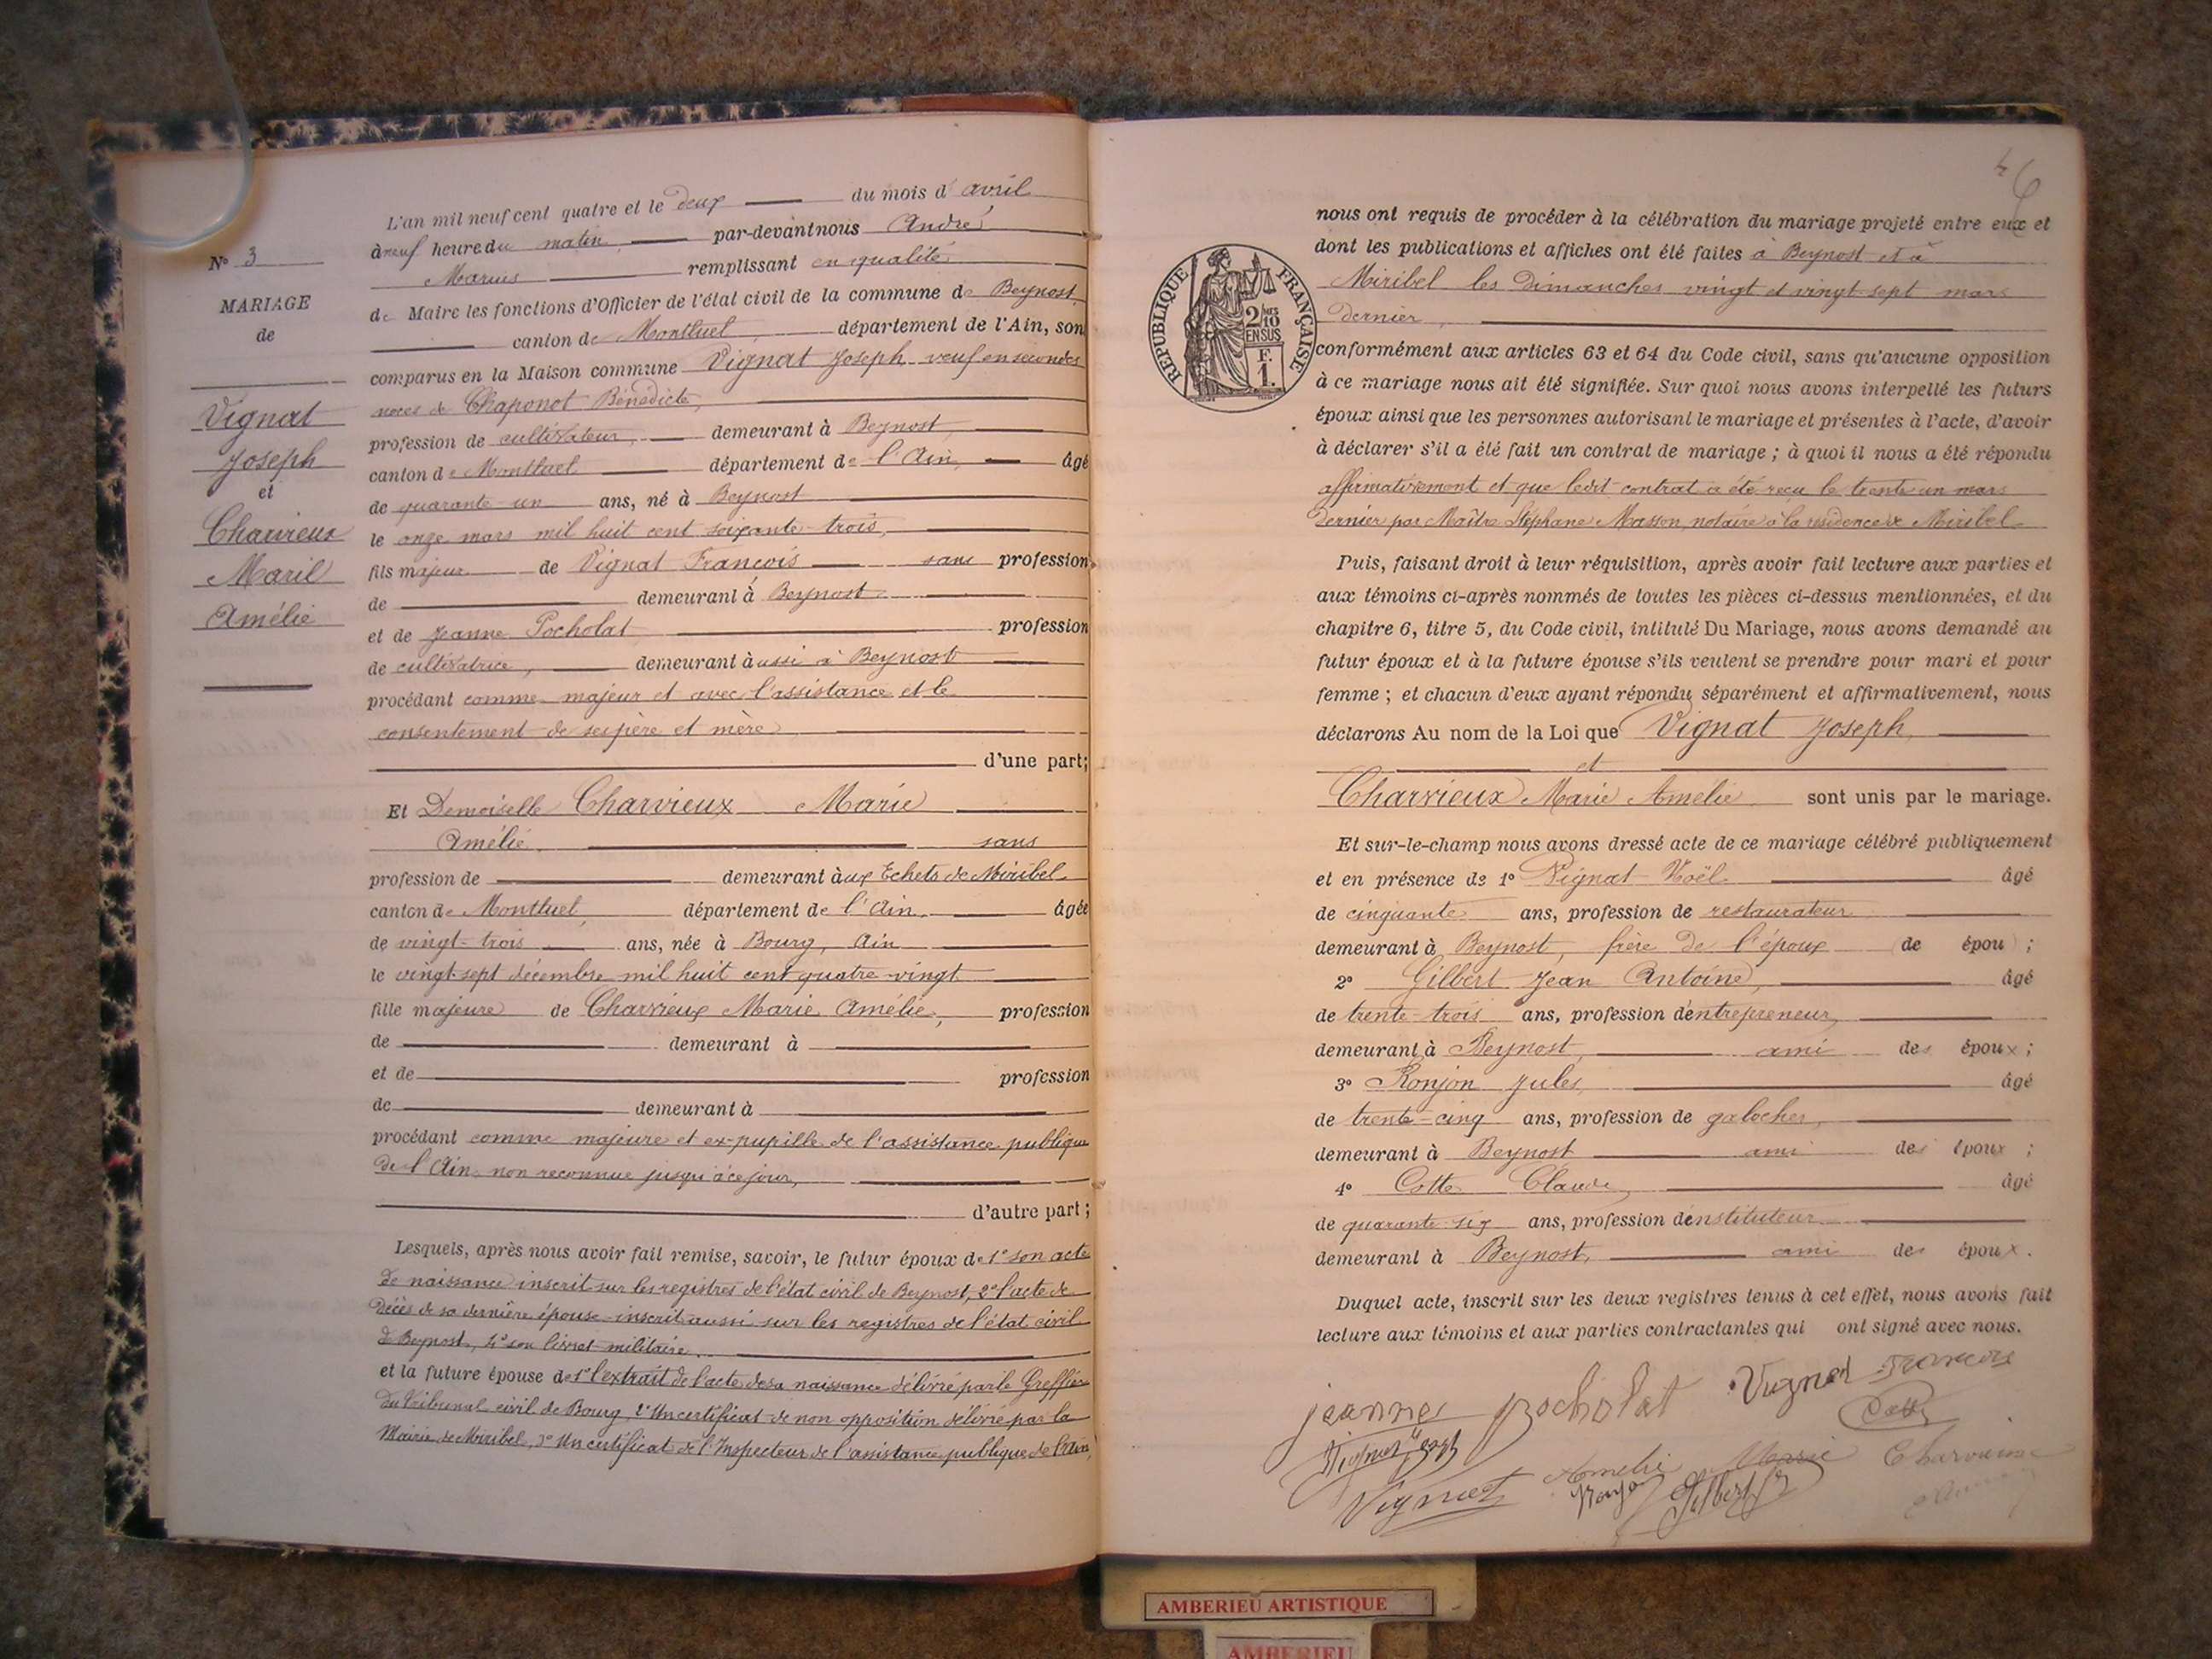 L'an mil neuf cent quatre et le deux du mois d'avril
à neuf heure du matin par-devant nous André
Marius remplissant en qualité
de Maire les fonctions d'Officier de l'état civil de la commune de Beynost,
canton de Montluel, département de l'Ain, son
comparus en la Maison commune Vignat Joseph veuf en secondes
noces de Chaponot Bénédicte,
profession de cultivateur, demeurant à Beynost,
canton de Montluel département de l'Ain, âgé
de quarante-un ans, né à Beynost
le onze mars mil huit cent soixante-trois,
fils majeur de Vignat François sans profession
de demeurant à Beynost
et de Jeanne Pocholat profession
de cultivatrice, demeurant à aussi à Beynost
procédant comme majeur et avec l'assistance et le
consentement de ses père et mère
d'une part;
Et Demoiselle Charvieux Marie
Amélie sans
profession de demeurant àux Echets de Miribel
canton de Montluel, département de l'Ain, âgée
de vingt-trois ans, née à Bourg, Ain
le vingt-sept décembre mil huit cent quatre-vingt
fille majeure de Charvieux Marie Amélie, profession
de demeurant à
et de profession
de demeurant à
procédant comme majeure et ex-pupille de l'assistance publique
de l'Ain non reconnue jusqu'à ce jour,
d'autre part;
Lesquels, après nous avoir fait remise, savoir, le futur époux de 1° son acte
de naissance inscrit sur les registres de l'état civil de Beynost, 2° l'acte de
décès de sa dernière épouse inscrit aussi sur les registres de l'état civil
de Beynost, 4° son livret militaire.
et la future épouse de 1° l'extrait de l'acte de sa naissance délivré par le Greffier
du Tribunal civil de Bourg, 2° Un certificat de non opposition délivré par la
Mairie de Miribel, 3° Un certificat de l'Inspecteur de l'assistance publique de l'Ain,
N° 3
MARIAGE
de
Vignat
Joseph
et
Charvieux
Marie
Amélie
46
nous ont requis de procéder à la célébration du mariage projeté entre eux et
dont les publications et affiches ont été faites à Beynost et à
Miribel les Dimanches vingt et vingt-sept mars
dernier,
conformément aux articles 63 et 64 du Code civil, sans qu'aucune opposition
à ce mariage nous ait été signifiée. Sur quoi nous avons interpellé les futurs
époux ainsi que les personnes autorisant le mariage et présentes à l'acte, d'avoir
à déclarer s'il a été fait un contrat de mariage ; à quoi il nous a été répondu
affirmativement et que ledit contrat a été reçu le trente un mars
dernier par Maître Stéphane Masson, notaire à la résidence de Miribel
Puis, faisant droit à leur réquisition, après avoir fait lecture aux parties et
aux témoins ci-après nommés de toutes les pièces ci-dessus mentionnées, et du
chapitre 6, titre 5, du Code civil, intitulé Du Mariage, nous avons demandé au
futur époux et à la future épouse s'ils veulent se prendre pour mari et pour
femme ; et chacun d'eux ayant répondu séparément et affirmativement, nous
déclarons Au nom de la Loi que Vignat Joseph,
et
Charvieux Marie Amélie sont unis par le mariage.
Et sur-le-champ nous avons dressé acte de ce mariage célébré publiquement
et en présence de 1° Vignat Noël âgé
de cinquante ans, profession de restaurateur
demeurant à Beynost, frère de l'époux de épou ;
2° Gilbert Jean Antoine, âgé
de trente-trois ans, profession d'entrepreneur,
demeurant à Beynost, ami des époux ;
3° Ronjon Jules, âgé
de trente-cinq ans, profession de galocher,
demeurant à Beynost ami des époux ;
4° Cotte Claude, âgé
de quarante-six ans, profession d'instituteur
demeurant à Beynost, ami des époux.
Duquel acte, inscrit sur les deux registres tenus à cet effet, nous avons fait
lecture aux témoins et aux parties contractantes qui ont signé avec nous.
jeanne pocholat Vignat François
Cotte
Vignat Joseph
Amélie Marie Charvieux
Vignat Ronjon Gilbert
RÉPUBLIQUE FRANÇAISE
2/10
EN SUS
F.
1.
AMBERIEU ARTISTIQUE
AMBERIEU